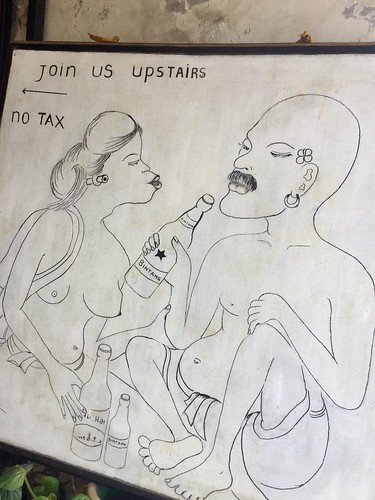 Join us upstairs
no TAX
BINTANG
BINTANG